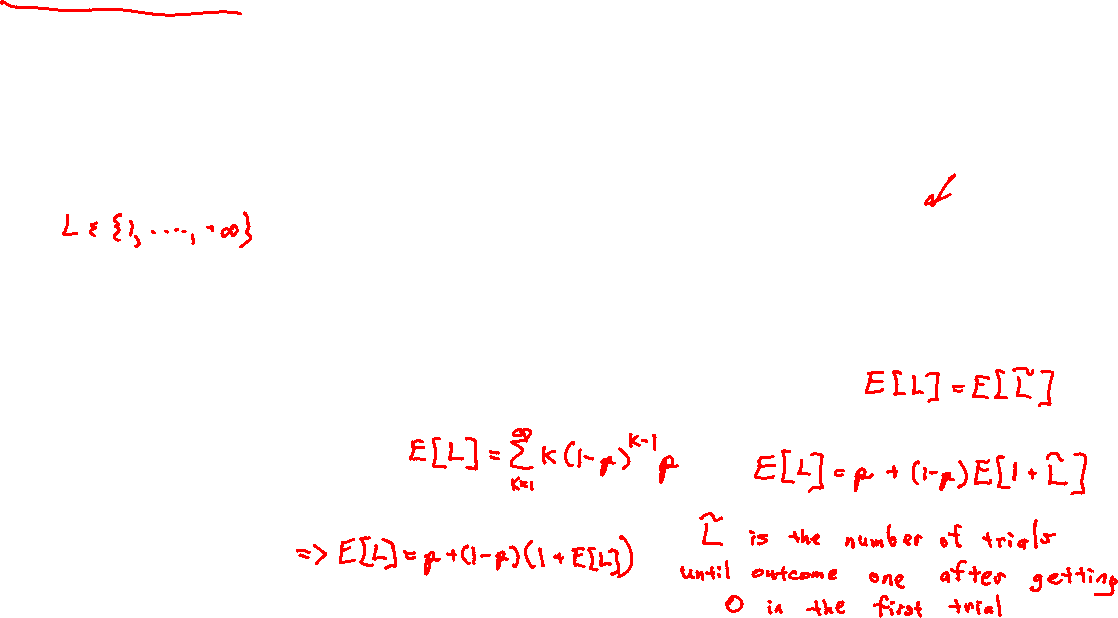 L ∈ {1, ....., +∞}
E[L] = E[L̃]
E[L] = ∑_{k=1}^{∞} k(1-p)^{k-1} p
E[L] = p + (1-p) E[1 + L̃]
=> E[L] = p + (1-p)(1 + E[L])
L̃ is the number of trials
until outcome one after getting
0 in the first trial